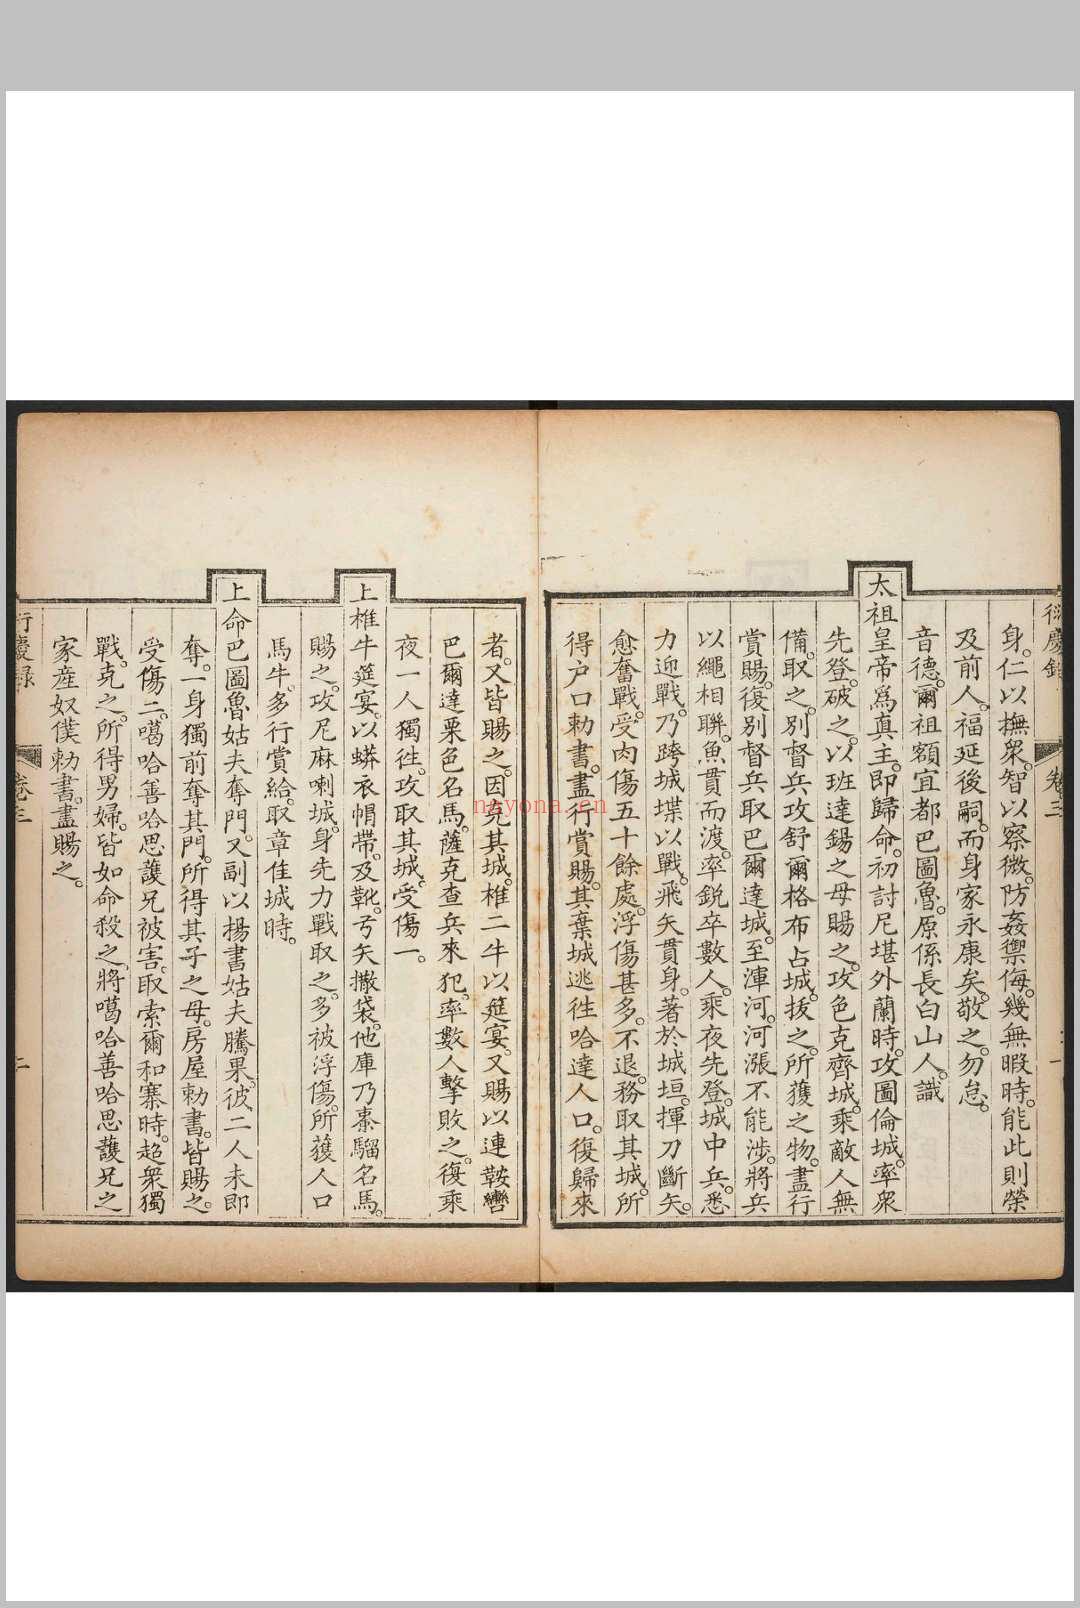 身。仁以撫衆。智以察微。防姦禦侮。幾無暇時。能此則榮
及前人。福延後嗣。而身家永康矣。敬之。勿怠。
音德。爾祖額宜都巴圖魯。原係長白山人。識
太祖皇帝爲真主。即歸命。初討尼堪外蘭時。攻圖倫城。率衆
先登。破之。以班達錫之母賜之。攻色克齊城。乘敵人無
備。取之。別督兵攻舒爾格布占城。拔之。所獲之物。盡行
賞賜。復別督兵取巴爾達城。至渾河。河漲不能涉。將兵
以繩相聯。魚貫而渡。率銳卒數人。乘夜先登。城中兵。悉
力迎戰。乃跨城堞以戰。飛矢貫身。著於城垣。揮刀斷矢。
愈奮戰。受肉傷五十餘處。浮傷甚多。不退。務取其城。所
得户口勅書。盡行賞賜。其棄城逃徃哈達人口。復歸來
者。又皆賜之。因克其城。椎二牛以筵宴。又賜以連鞍轡
巴爾達栗色名馬。薩克查兵來犯。率數人擊敗之。復乘
夜一人獨徃。攻取其城。受傷一。
上椎牛筵宴。以蟒衣帽帶。及靴。弓矢撒袋。他庫乃棗騮名馬。
賜之。攻尼麻喇城。身先力戰取之。多被浮傷。所獲人口
馬牛。多行賞給。取章佳城時。
上命巴圖魯姑夫奪門。又副以揚書姑夫騰果。彼二人未即
奪。一身獨前奪其門。所得其子之母。房屋勅書。皆賜之。
受傷二。噶哈善哈思護兄被害。取索爾和寨時。超衆獨
戰。克之。所得男婦。皆如命殺之。將噶哈善哈思護兄之
家産奴僕勅書。盡賜之。
行慶録 卷三
nayona.cn